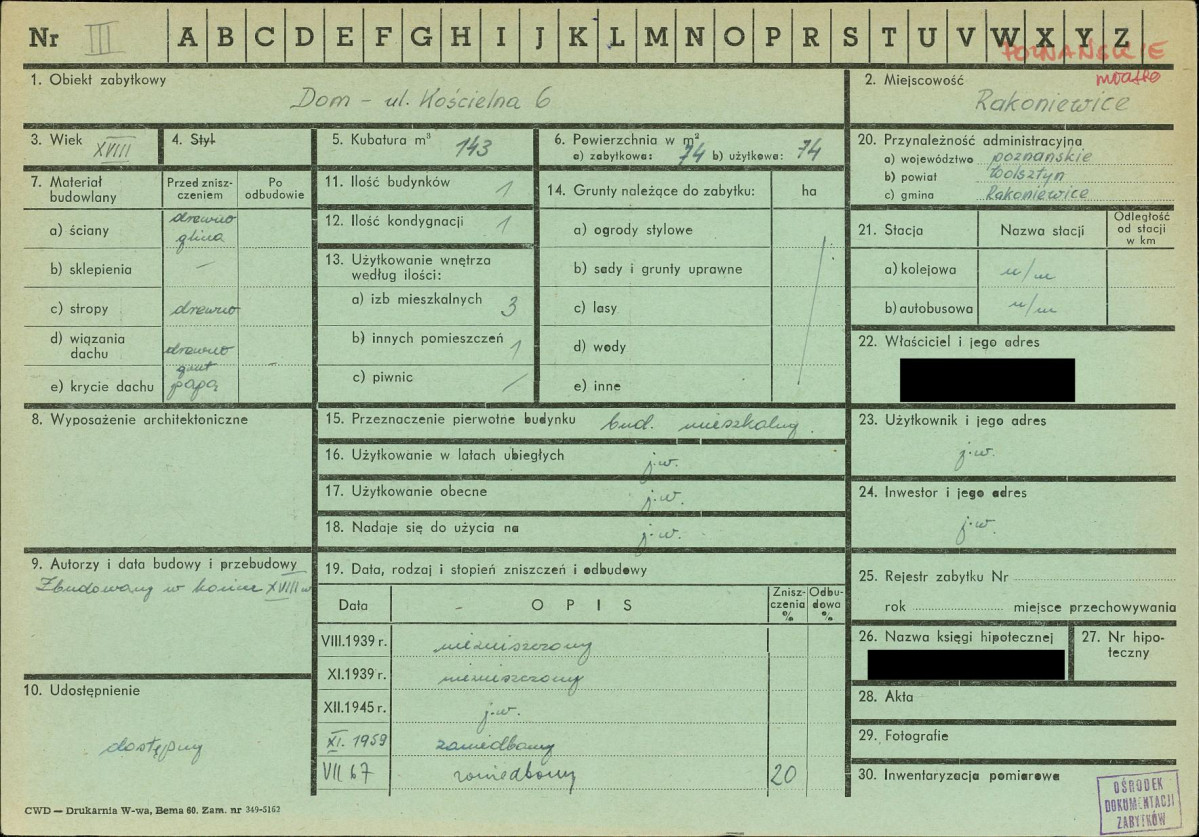 Nr III A B C D E F G H I J K L M N O P R S T U V W X Y Z
POZNAŃSKIE
miasto
1. Obiekt zabytkowy
Dom - ul. Kościelna 6
2. Miejscowość
Rakoniewice
3. Wiek XVIII
4. Styl
5. Kubatura m³ 143
6. Powierzchnia w m²
a) zabytkowa: 74 b) użytkowa: 74
20. Przynależność administracyjna
a) województwo poznańskie
b) powiat Wolsztyn
c) gmina Rakoniewice
7. Materiał budowlany
Przed zniszczeniem
Po odbudowie
a) ściany drewno glina
b) sklepienia —
c) stropy drewno
d) wiązania dachu drewno
e) krycie dachu papą
11. Ilość budynków 1
12. Ilość kondygnacji 1
13. Użytkowanie wnętrza według ilości:
a) izb mieszkalnych 3
b) innych pomieszczeń 1
c) piwnic /
14. Grunty należące do zabytku: ha
a) ogrody stylowe
b) sady i grunty uprawne
c) lasy
d) wody
e) inne
21. Stacja Nazwa stacji Odległość od stacji w km
a) kolejowa n/m
b) autobusowa n/m
22. Właściciel i jego adres
8. Wyposażenie architektoniczne
15. Przeznaczenie pierwotne budynku bud. mieszkalny
16. Użytkowanie w latach ubiegłych j.w.
17. Użytkowanie obecne j.w.
18. Nadaje się do użycia na j.w.
23. Użytkownik i jego adres
j.w.
24. Inwestor i jego adres
j.w.
9. Autorzy i data budowy i przebudowy
Zbudowany w końcu XVIII w
19. Data, rodzaj i stopień zniszczeń i odbudowy
Data OPIS Zniszczenia % Odbudowa %
VIII.1939 r. niezniszczony
XI.1939 r. niezniszczony
XII.1945 r. j.w.
XI. 1959 zaniedbany
VII 67 zaniedbany 20
25. Rejestr zabytku Nr
rok miejsce przechowywania
26. Nazwa księgi hipotecznej
27. Nr hipoteczny
10. Udostępnienie
dostępny
28. Akta
29. Fotografie
30. Inwentaryzacja pomiarowa
CWD — Drukarnia W-wa, Bema 60. Zam. nr 349-5162
OŚRODEK
DOKUMENTACJI
ZABYTKÓW